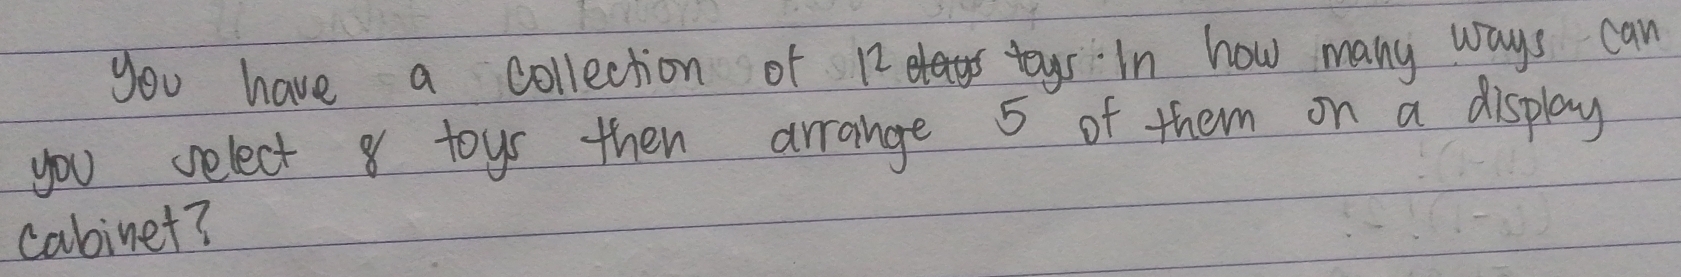 you have a collection of 12 toys. In how many ways can
you select 8 toys then arrange 5 of them on a display
cabinet?